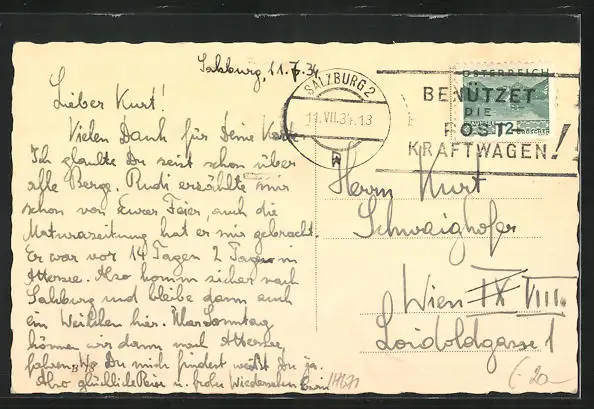 Salzburg, 11.7.34
Lieber Kurt!
Vielen Dank für Deine Karte
Ich glaubte Du seist schon über
alle Berge. Rudi erzählte mir
schon von Eurer Feier, auch die
Maturazeitung hat er mir gebracht.
Er war vor 14 Tagen 2 Tage in
Attersee. Also komm sicher nach
Salzburg und bleibe dann auch
ein Weilchen hier. Sonntag
können wir dann nach Attersee
fahren. Wo Du mich findest weißt Du ja.
Also glückliche Reise u. frohes Wiedersehen
SALZBURG 2
11.VII.34.13
ÖSTERREICH
BENÜTZET
DIE
POST-
KRAFTWAGEN!
12
GROSCHEN
Herrn Kurt
Schwaighofer
Wien IX VIII.
Loidoldgasse 1